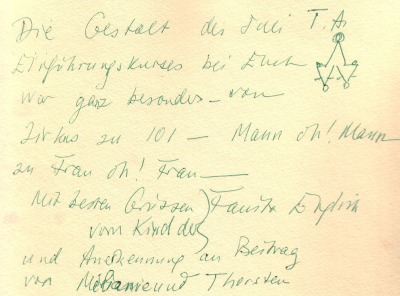 Die Gestalt des Juli T.A.
Einführungskurses bei Euch
war ganz besonders – von
Zirkus zu 101 – Mann oh! Mann
zu Frau oh! Frau –
Mit besten Grüssen
vom Kind der } Fanita English
und Anerkennung an Beitrag
von Melanie und Thorsten